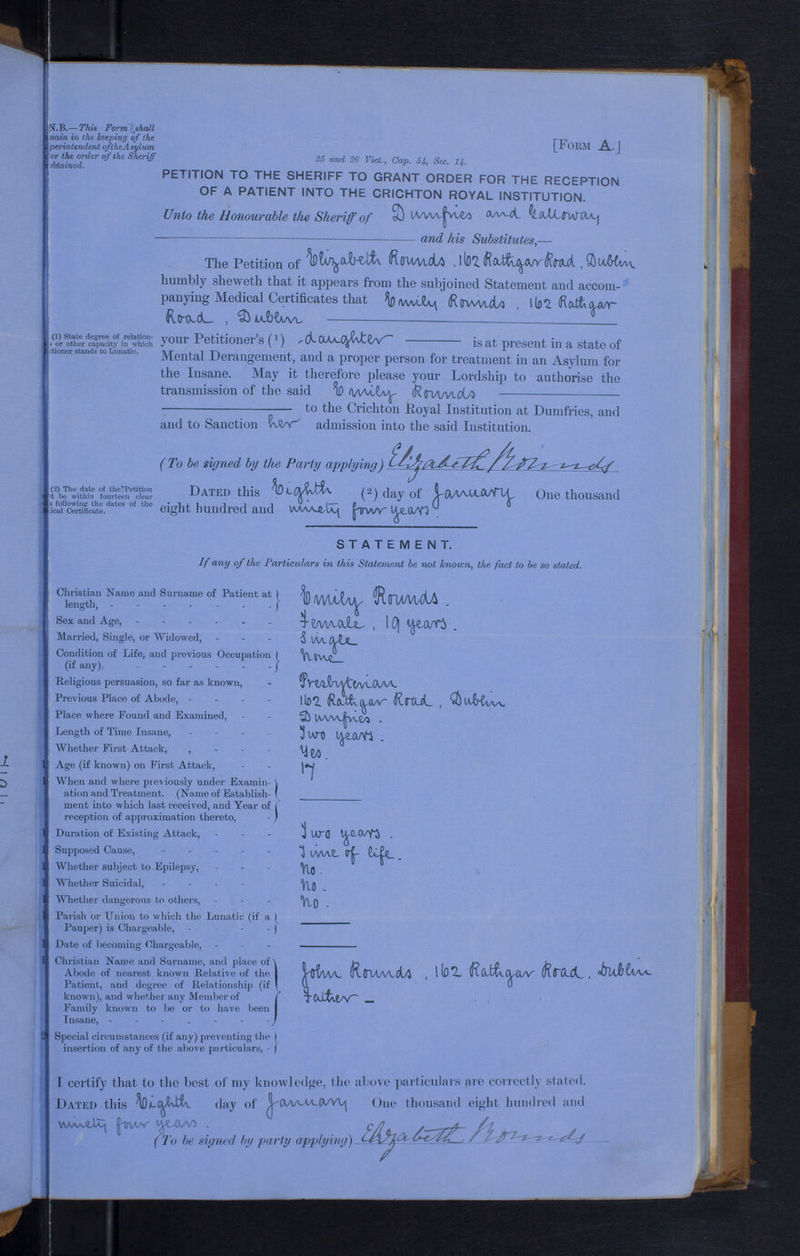 N.B.—This Form shall
main in the keeping of the
perintendent of the Asylum
er the order of the Sheriff
obtained.
[FORM A.]
25 and 26 Vict., Cap. 54, Sec. 14.
PETITION TO THE SHERIFF TO GRANT ORDER FOR THE RECEPTION
OF A PATIENT INTO THE CRICHTON ROYAL INSTITUTION.
Unto the Honourable the Sheriff of Dumfries and Galloway
and his Substitutes,—
The Petition of Elizabeth Rounds . 162 Rathgar Road , Dublin
humbly sheweth that it appears from the subjoined Statement and accom-
panying Medical Certificates that Emily Rounds , 162 Rathgar
Road , Dublin
(1) State degree of relation-
or other capacity in which
itioner stands to Lunatic.
your Petitioner's (1) daughter is at present in a state of
Mental Derangement, and a proper person for treatment in an Asylum for
the Insane. May it therefore please your Lordship to authorise the
transmission of the said Emily Rounds
to the Crichton Royal Institution at Dumfries, and
and to Sanction her admission into the said Institution.
(To be signed by the Party applying) Elizabeth Rounds
(2) The date of the Petition
t be within fourteen clear
s following the dates of the
ical Certificate.
DATED this Eighth (2) day of January One thousand
eight hundred and ninety four years.
STATEMENT.
If any of the Particulars in this Statement be not known, the fact to be so stated.
Christian Name and Surname of Patient at length, - Emily Rounds.
Sex and Age, - Female , 19 years .
Married, Single, or Widowed, - Single
Condition of Life, and previous Occupation (if any). - None
Religious persuasion, so far as known, - Presbyterian
Previous Place of Abode, - 162 Rathgar Road , Dublin
Place where Found and Examined, - Dumfries .
Length of Time Insane, - Two years .
Whether First Attack, - Yes.
Age (if known) on First Attack, - 17
When and where previously under Examin-
ation and Treatment. (Name of Establish-
ment into which last received, and Year of
reception of approximation thereto, -
Duration of Existing Attack, - Two years .
Supposed Cause, - Time of life .
Whether subject to Epilepsy, - No .
Whether Suicidal, - No .
Whether dangerous to others, - No .
Parish or Union to which the Lunatic (if a
Pauper) is Chargeable, -
Date of becoming Chargeable, -
Christian Name and Surname, and place of
Abode of nearest known Relative of the John Rounds , 162 Rathgar Road . Dublin
Patient, and degree of Relationship (if
known), and whether any Member of Father —
Family known to be or to have been
Insane, -
Special circumstances (if any) preventing the
insertion of any of the above particulars, -
I certify that to the best of my knowledge, the above particulars are correctly stated.
DATED this Eighth day of January One thousand eight hundred and
ninety four years .
(To be signed by party applying) Elizabeth Rounds